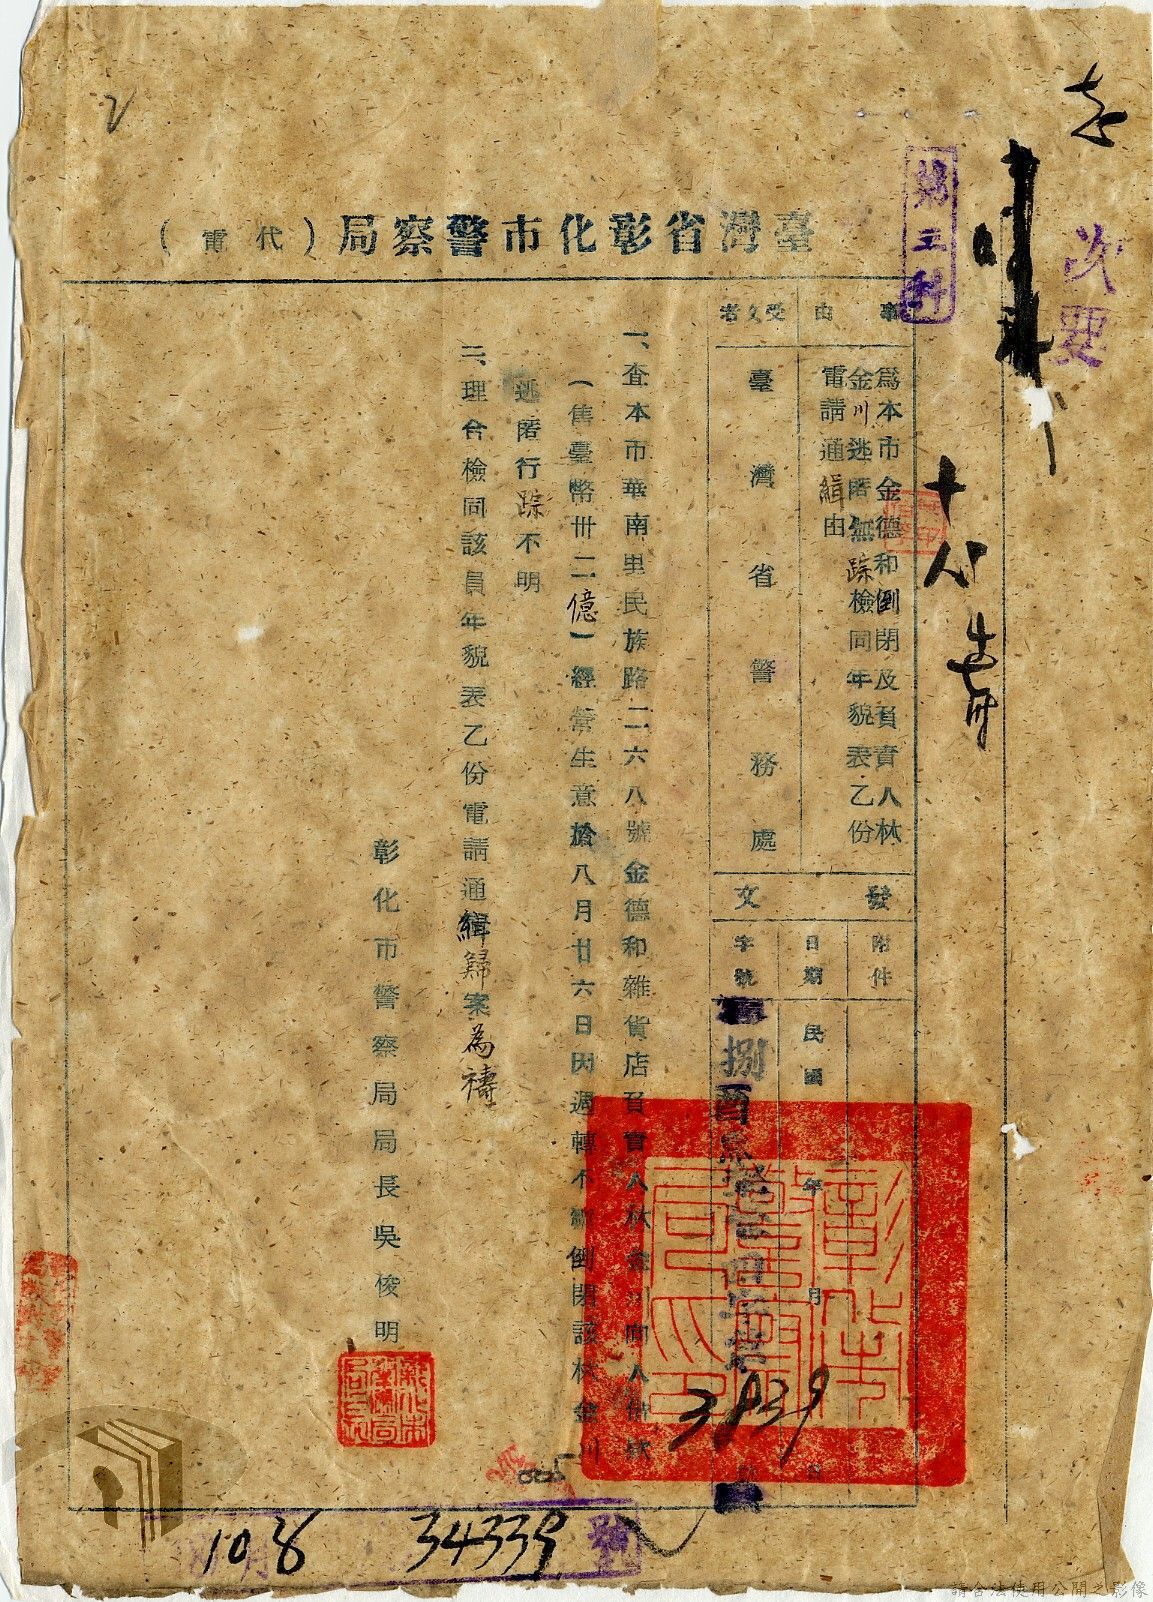 臺灣省彰化市警察局（代電）
第三科
次要
事由
為本市金德和倒閉及負責人林
金川逃匿無踪檢同年貌表乙份
電請通緝由
受文者
臺灣省警務處
發文
附件
日期
民國 年 月 日
字號
捌酉
3839
一、查本市華南里民族路二六八號金德和雜貨店負責人林金川向人借款
（舊臺幣卅二億）經營生意於八月廿六日因週轉不靈倒閉該林金川
逃匿行踪不明
二、理合檢同該員年貌表乙份電請通緝歸案為禱
彰化市警察局局長吳俊明
彰化市警察局印
號
34339
10 8
請合法使用公開之影像